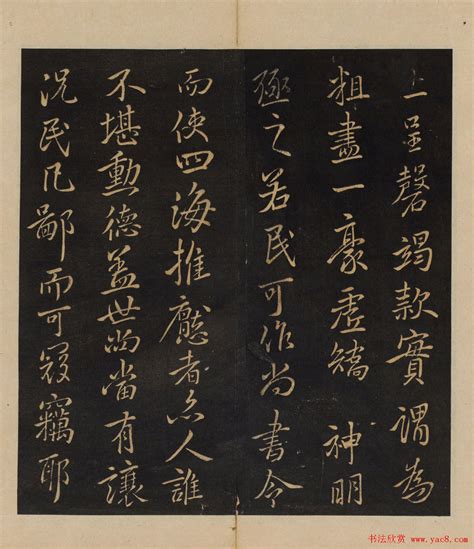 上呈磬竭款實謂為
粗盡一豪虛矯 神明
殛之若民可作尚書令
而使四海推者亦人誰
不堪勳德蓋世尚當有讓
況民凡鄙而可冦竊耶
书法欣赏 www.yac8.com